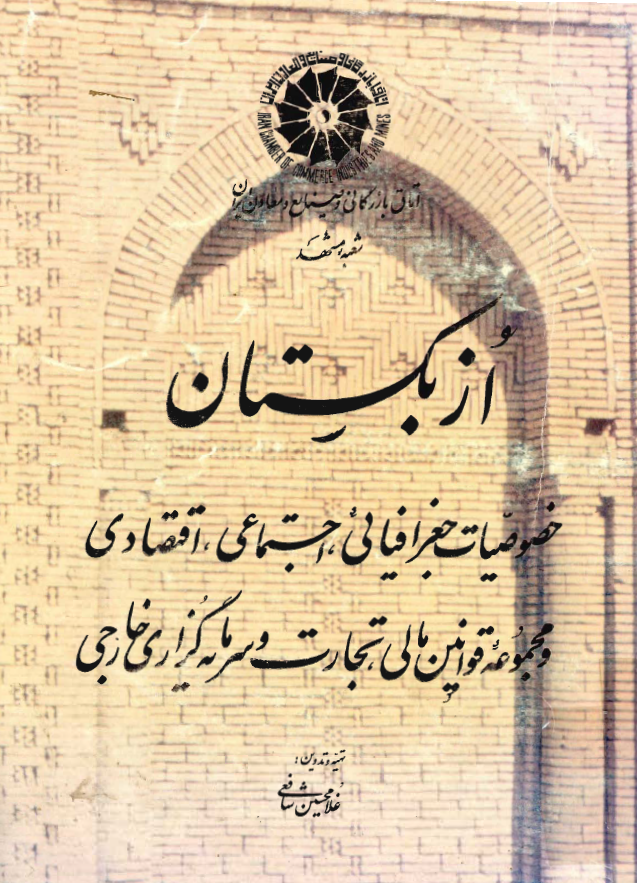 اتاق بازرگانی و صنایع و معادن ایران
IRAN CHAMBER OF COMMERCE INDUSTRIES AND MINES
اتاق بازرگانی و صنایع و معادن ایران
شعبه مشهد
اُزبکستان
خصوصیّات جغرافیائی، اجتماعی، اقتصادی
و مجموعهٔ قوانین مالی، تجارت و سرمایه گزاری خارجی
تهیه و تدوین:
غلامحسین شافعی